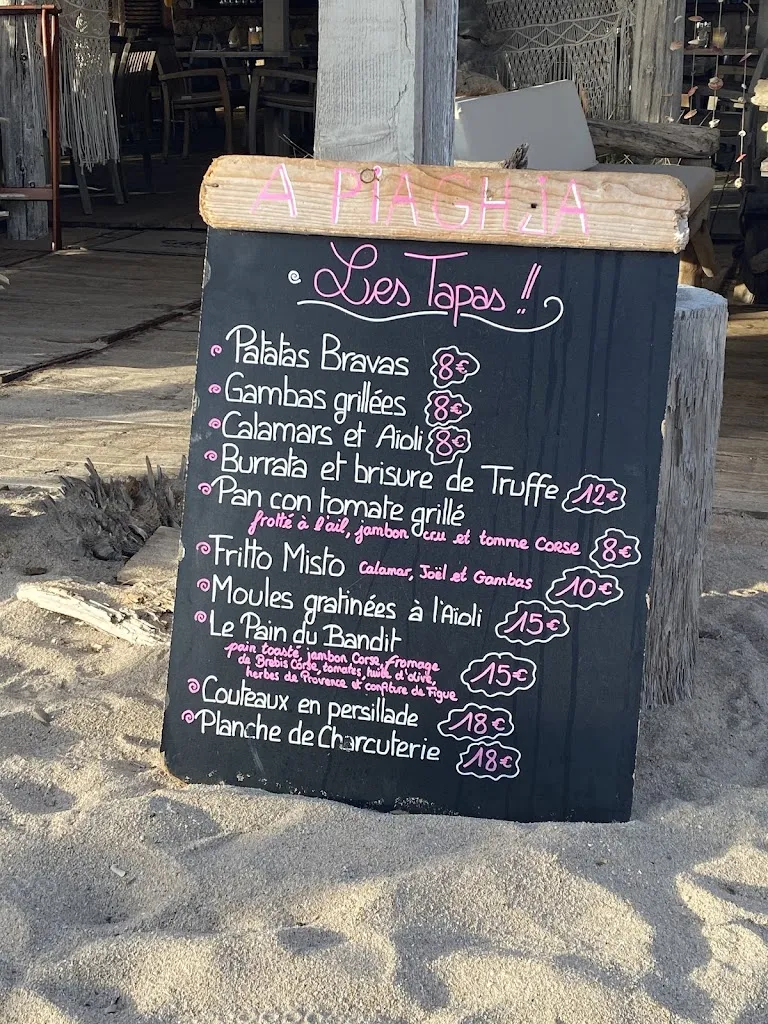 A PIAGHJA
Les Tapas !!
Patatas Bravas 8€
Gambas grillées 8€
Calamars et Aïoli 8€
Burrata et brisure de Truffe 12€
Pan con tomate grillé
frotté à l'ail, jambon cru et tomme Corse 8€
Fritto Misto Calamar, Joël et Gambas 10€
Moules gratinées à l'Aïoli 15€
Le Pain du Bandit
pain toasté, jambon Corse, fromage
de Brebis Corse, tomates, huile d'olive, 15€
herbes de Provence et confiture de Figue
Couteaux en persillade 18€
Planche de Charcuterie 18€